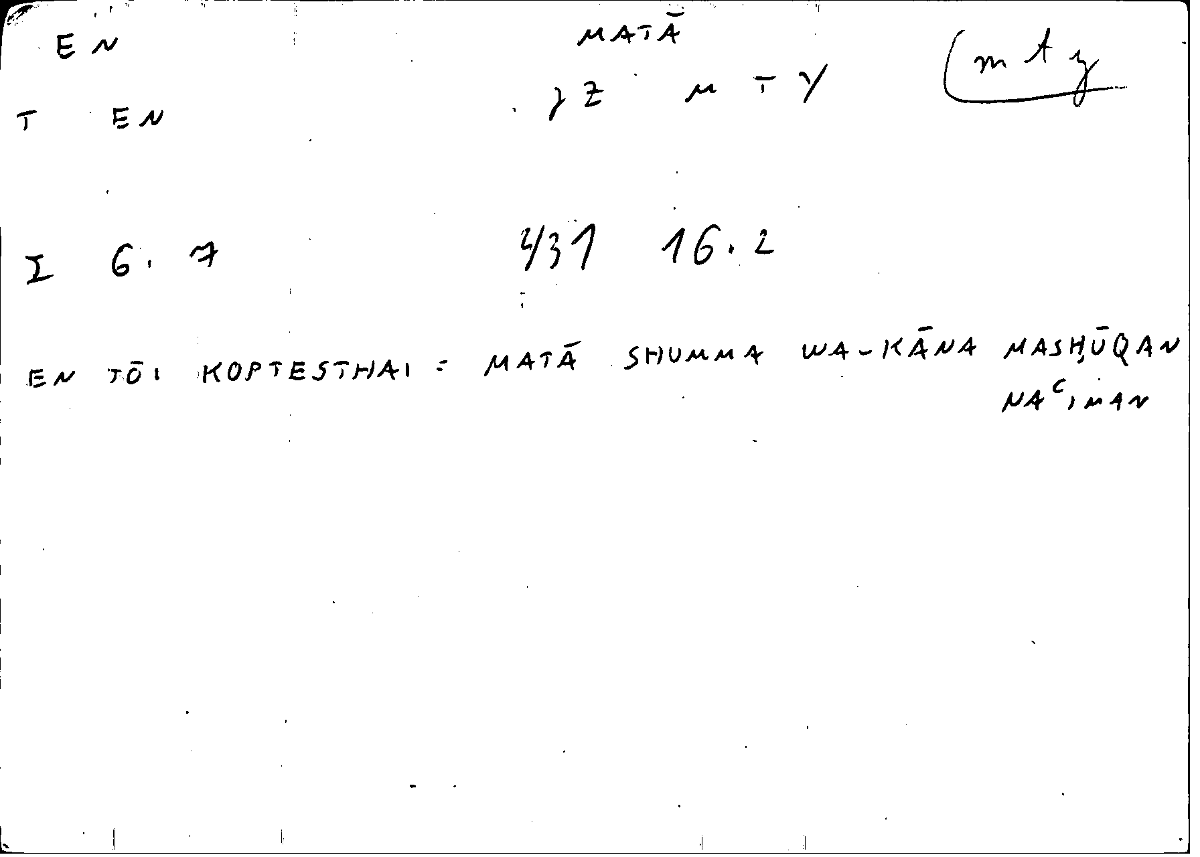 EN MATĀ mty
T EN 2Z MTY
I 6.7 431 16.2
EN TŌI KOPTESTHAI = MATĀ SHUMMA WA-KĀNA MASḤŪQAN
NAᶜIMAN